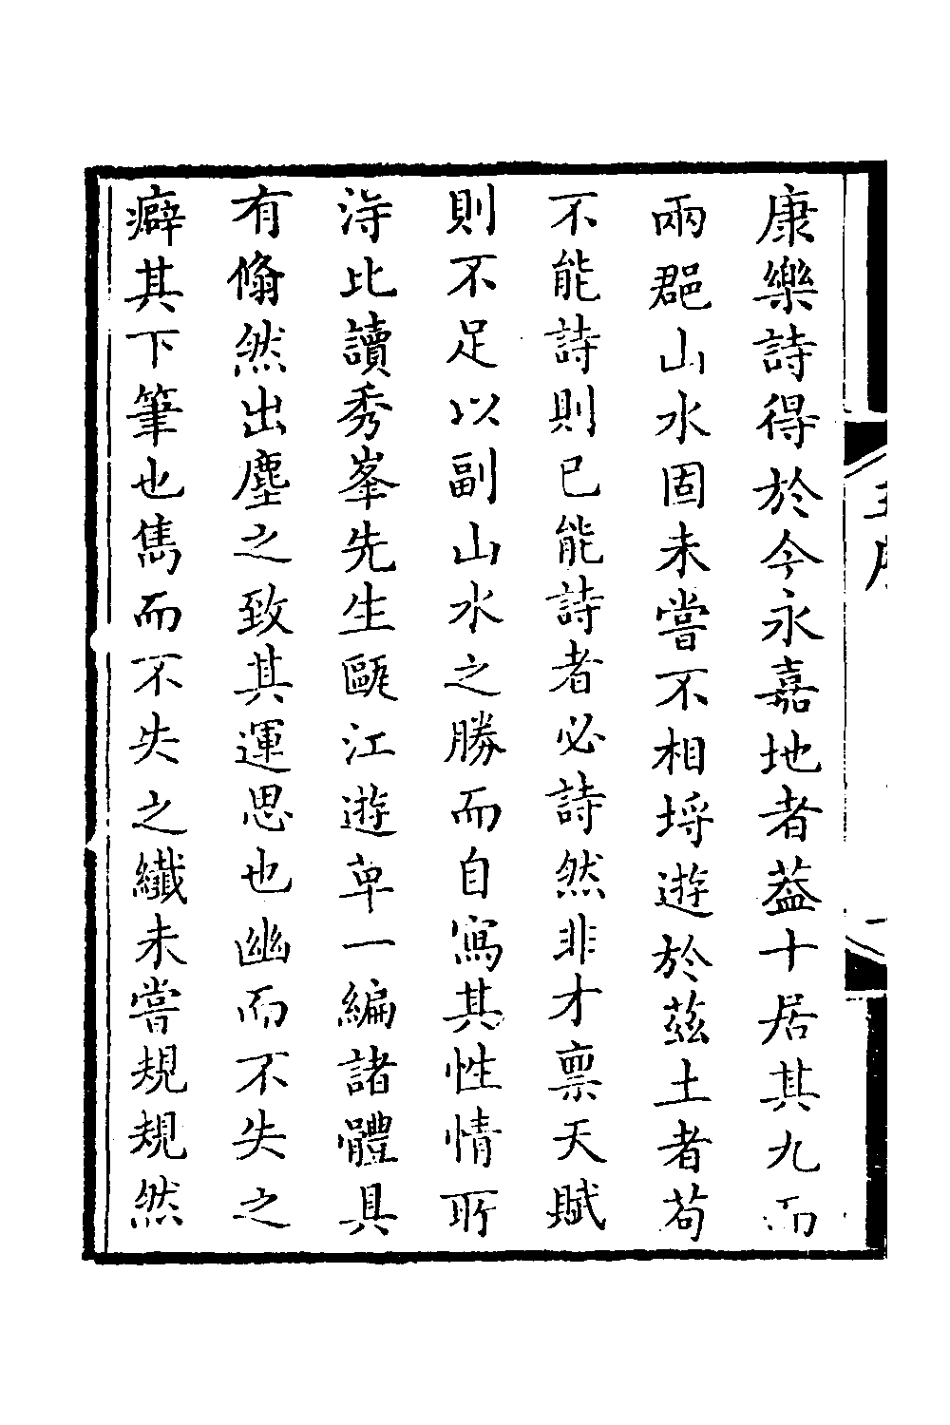 康樂詩得於今永嘉地者葢十居其九而
兩郡山水固未嘗不相埒遊於茲土者苟
不能詩則已能詩者必詩然非才禀天賦
則不足以副山水之勝而自寫其性情所
得比讀秀峯先生甌江遊草一編諸體具
有翛然出塵之致其運思也幽而不失之
癖其下筆也雋而不失之纖未嘗規規然